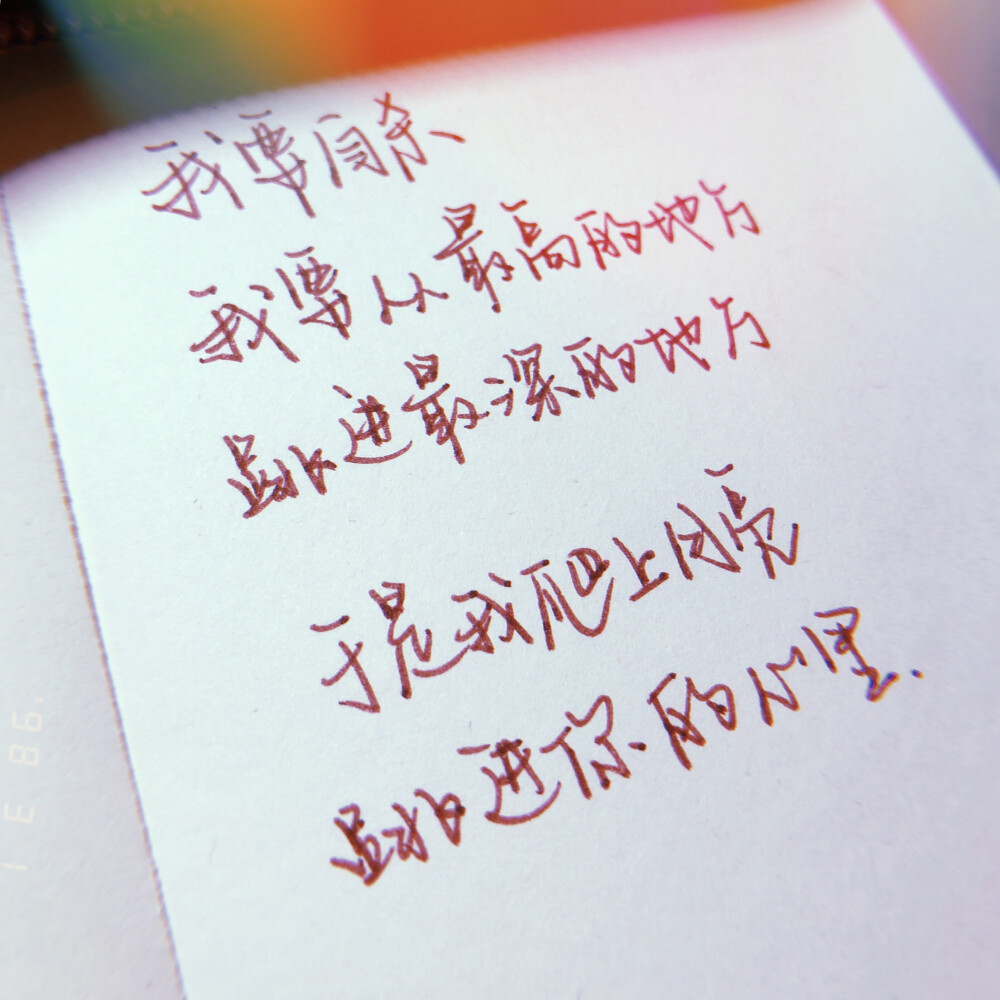 我要自杀
我要从最高的地方
跳进最深的地方
于是我爬上月亮
跳进你的心里.